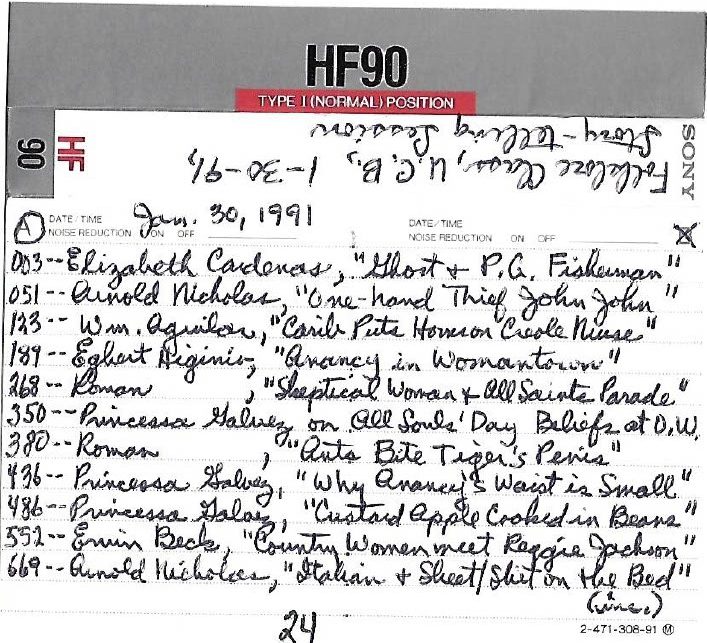 HF90
TYPE I (NORMAL) POSITION
90
HF
SONY
Folklore Class, U.C.B., 1-30-91,
Story-telling Session
A DATE/TIME Jan. 30, 1991
NOISE REDUCTION ON OFF
DATE/TIME
NOISE REDUCTION ON OFF
003--Elizabeth Cardenas, "Ghost + P.G. Fisherman"
051--Arnold Nicholas, "One-hand Thief John John"
123--Wm. Aguilar, "Carib Puts on Creole Nurse"
189--Egbert Higinio, "Anancy in Womantown"
268--Roman, "Skeptical Woman + All Saints Parade"
350--Princessa Galvez on All Souls' Day Beliefs at O.W.
380--Roman, "Ants Bite Tiger's Penis"
436--Princessa Galvez, "Why Anancy's Waist is Small"
486--Princessa Galvez, "Custard Apple Cooked in Beans"
552--Ervin Beck, "Country Women meet Reggie Jackson"
669--Arnold Nicholas, "Italian + Sheet/Shit on the Bed"
24
2-471-308-91 M